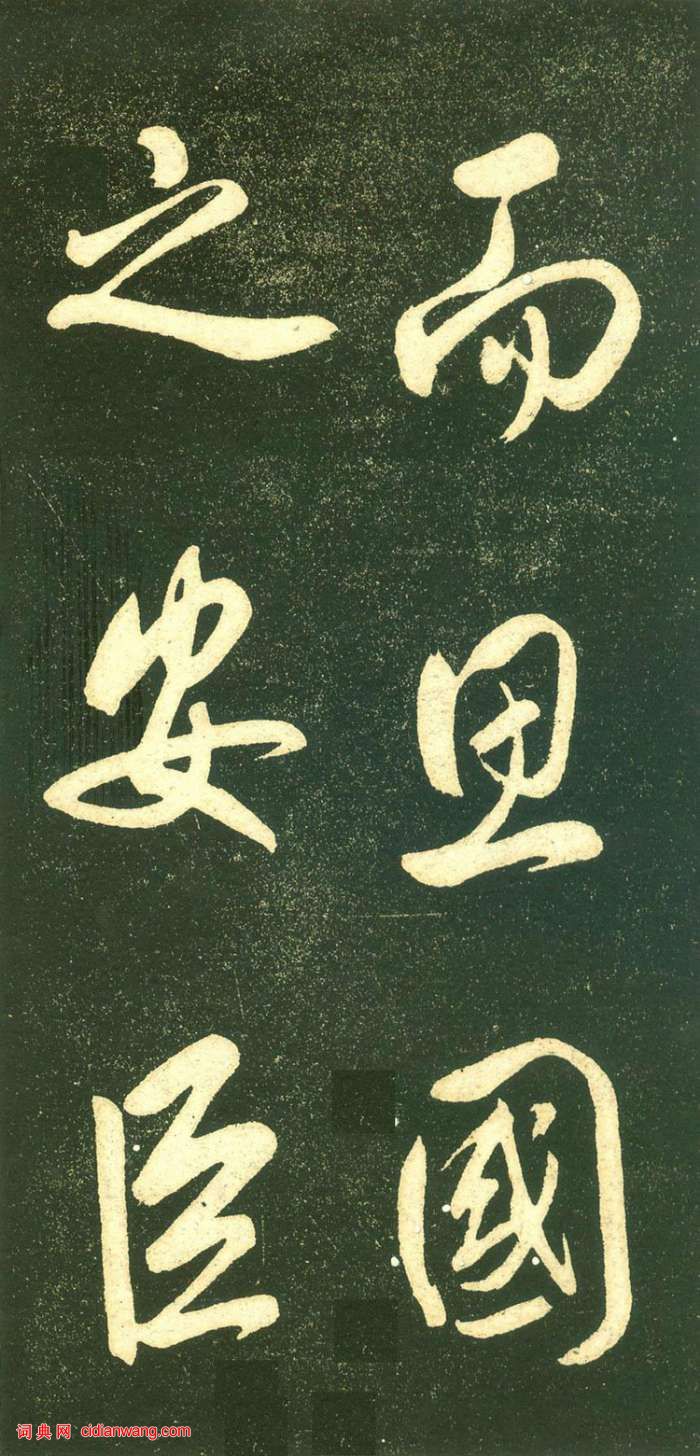 而思國
之安臣
词典网 cidianwang.com